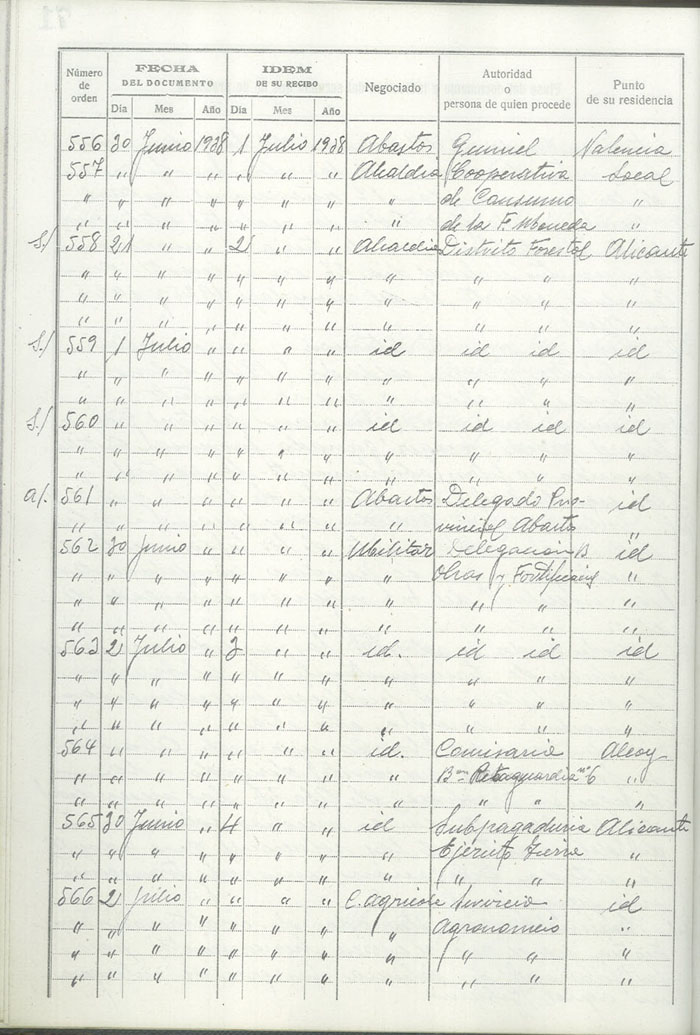 Número de orden | FECHA DEL DOCUMENTO | IDEM DE SU RECIBO | Negociado | Autoridad o persona de quien procede | Punto de su residencia
Día | Mes | Año | Día | Mes | Año
556 30 Junio 1938 1 Julio 1938 Abastos Gumiel Valencia
557 " " " " " " Alcaldia Cooperativa Local
" " " " " " " " de Consumo "
" " " " " " " " de la F. Moneda "
S./ 558 21 " " 2 " " Alcaldia Distrito Forestal Alicante
" " " " " " " " " " "
" " " " " " " " " " "
" " " " " " " " " " "
S./ 559 1 Julio " " " " id id id id
" " " " " " " " " " "
" " " " " " " " " " "
S./ 560 " " " " " " id id id id
" " " " " " " " " " "
" " " " " " " " " " "
a/. 561 " " " " " " Abastos Delegado Pro- id
" " " " " " " " vincial Abastos "
562 30 Junio " " " " Militar Delegación B id
" " " " " " " " Obras y "
" " " " " " " " " " "
" " " " " " " " " " "
563 2 Julio " 3 " " id. id id id
" " " " " " " " " " "
" " " " " " " " " " "
" " " " " " " " " " "
564 " " " " " " id. Comisaria Alcoy
" " " " " " " " Bon Retaguardia nº 6 "
" " " " " " " " " " "
565 30 Junio " 4 " " id Subpagaduria Alicante
" " " " " " " " Ejército Tierra "
" " " " " " " " " " "
566 2 Julio " " " " C. agricola Servicio id
" " " " " " " " Agronomico "
" " " " " " " " " " "
" " " " " " " " " " "